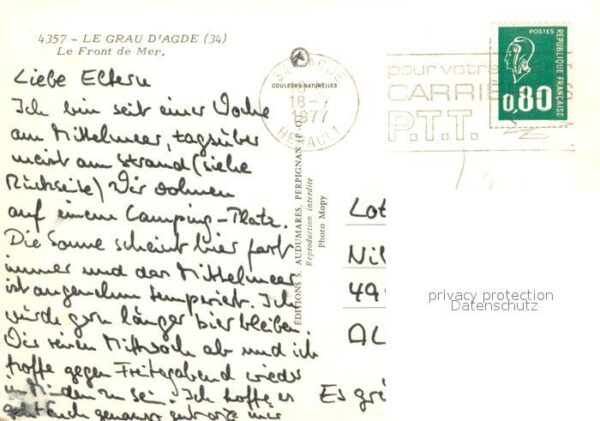 4357 - LE GRAU D'AGDE (34)
Le Front de Mer.
Liebe Eltern
Ich bin seit einer Woche
am Mittelmeer, tagsüber
meist am Strand (siehe
Rückseite) Wir wohnen
auf einem Camping-Platz.
Die Sonne scheint hier fast
immer und das Mittelmeer
ist angenehm temperiert. Ich
würde gern länger hier bleiben.
Wir reisen Mittwoch ab und ich
hoffe gegen Freitagabend wieder
in Minden zu sein. Ich hoffe es
geht Euch genauso gut wie mir
COULEURS NATURELLES
18-7
1977
HERAULT
ÉDITIONS S. AUDUMARES, PERPIGNAN
Reproduction interdite
Photo Mopy
pour votre
CARRIÈ
P.T.T.
POSTES
REPUBLIQUE FRANÇAISE
0,80
Lot
Nil
49
AL
privacy protection
Datenschutz
Es grü